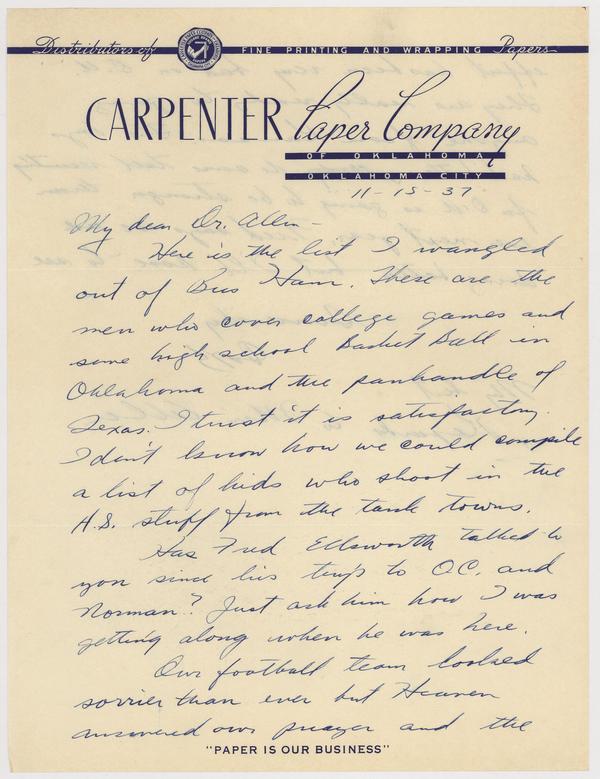 Distributors of FINE PRINTING AND WRAPPING Papers
CARPENTER Paper Company
OF OKLAHOMA
OKLAHOMA CITY
11-15-37
My dear Dr. Allen-
Here is the list I wangled
out of Bus Ham. These are the
men who cover college games and
some high school Basket Ball in
Oklahoma and the panhandle of
Texas. I trust it is satisfactory.
I don't know how we could compile
a list of kids who shoot in the
H.S. stuff from the tank towns.
Has Fred Ellsworth talked to
you since his trip to O.C. and
Norman? Just ask him how I was
getting along when he was here.
Our football team looked
sorrier than ever but Heaven
answered our prayer and the
"PAPER IS OUR BUSINESS"